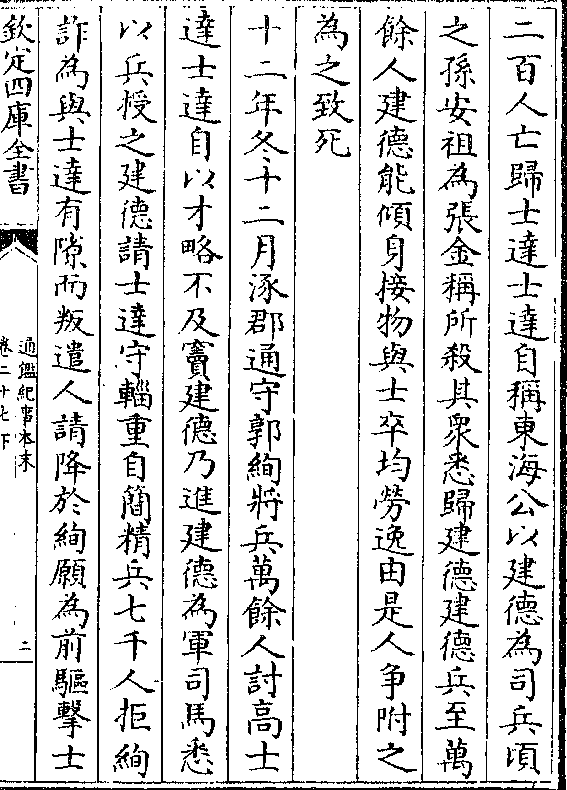 二百人亡歸士達士達自稱東海公以建德為司兵頃
之孫安祖為張金稱所殺其衆悉歸建德建德兵至萬
餘人建德能傾身接物與士卒均勞逸由是人爭附之
為之致死
十二年冬十二月涿郡通守郭絢將兵萬餘人討高士
達士達自以才略不及竇建德乃進建德為軍司馬悉
以兵授之建德請士達守輜重自簡精兵七千人拒絢
詐為與士達有隙而叛遣人請降於絢願為前驅擊士
欽定四庫全書
通鑑紀事本末
卷二十七下
二